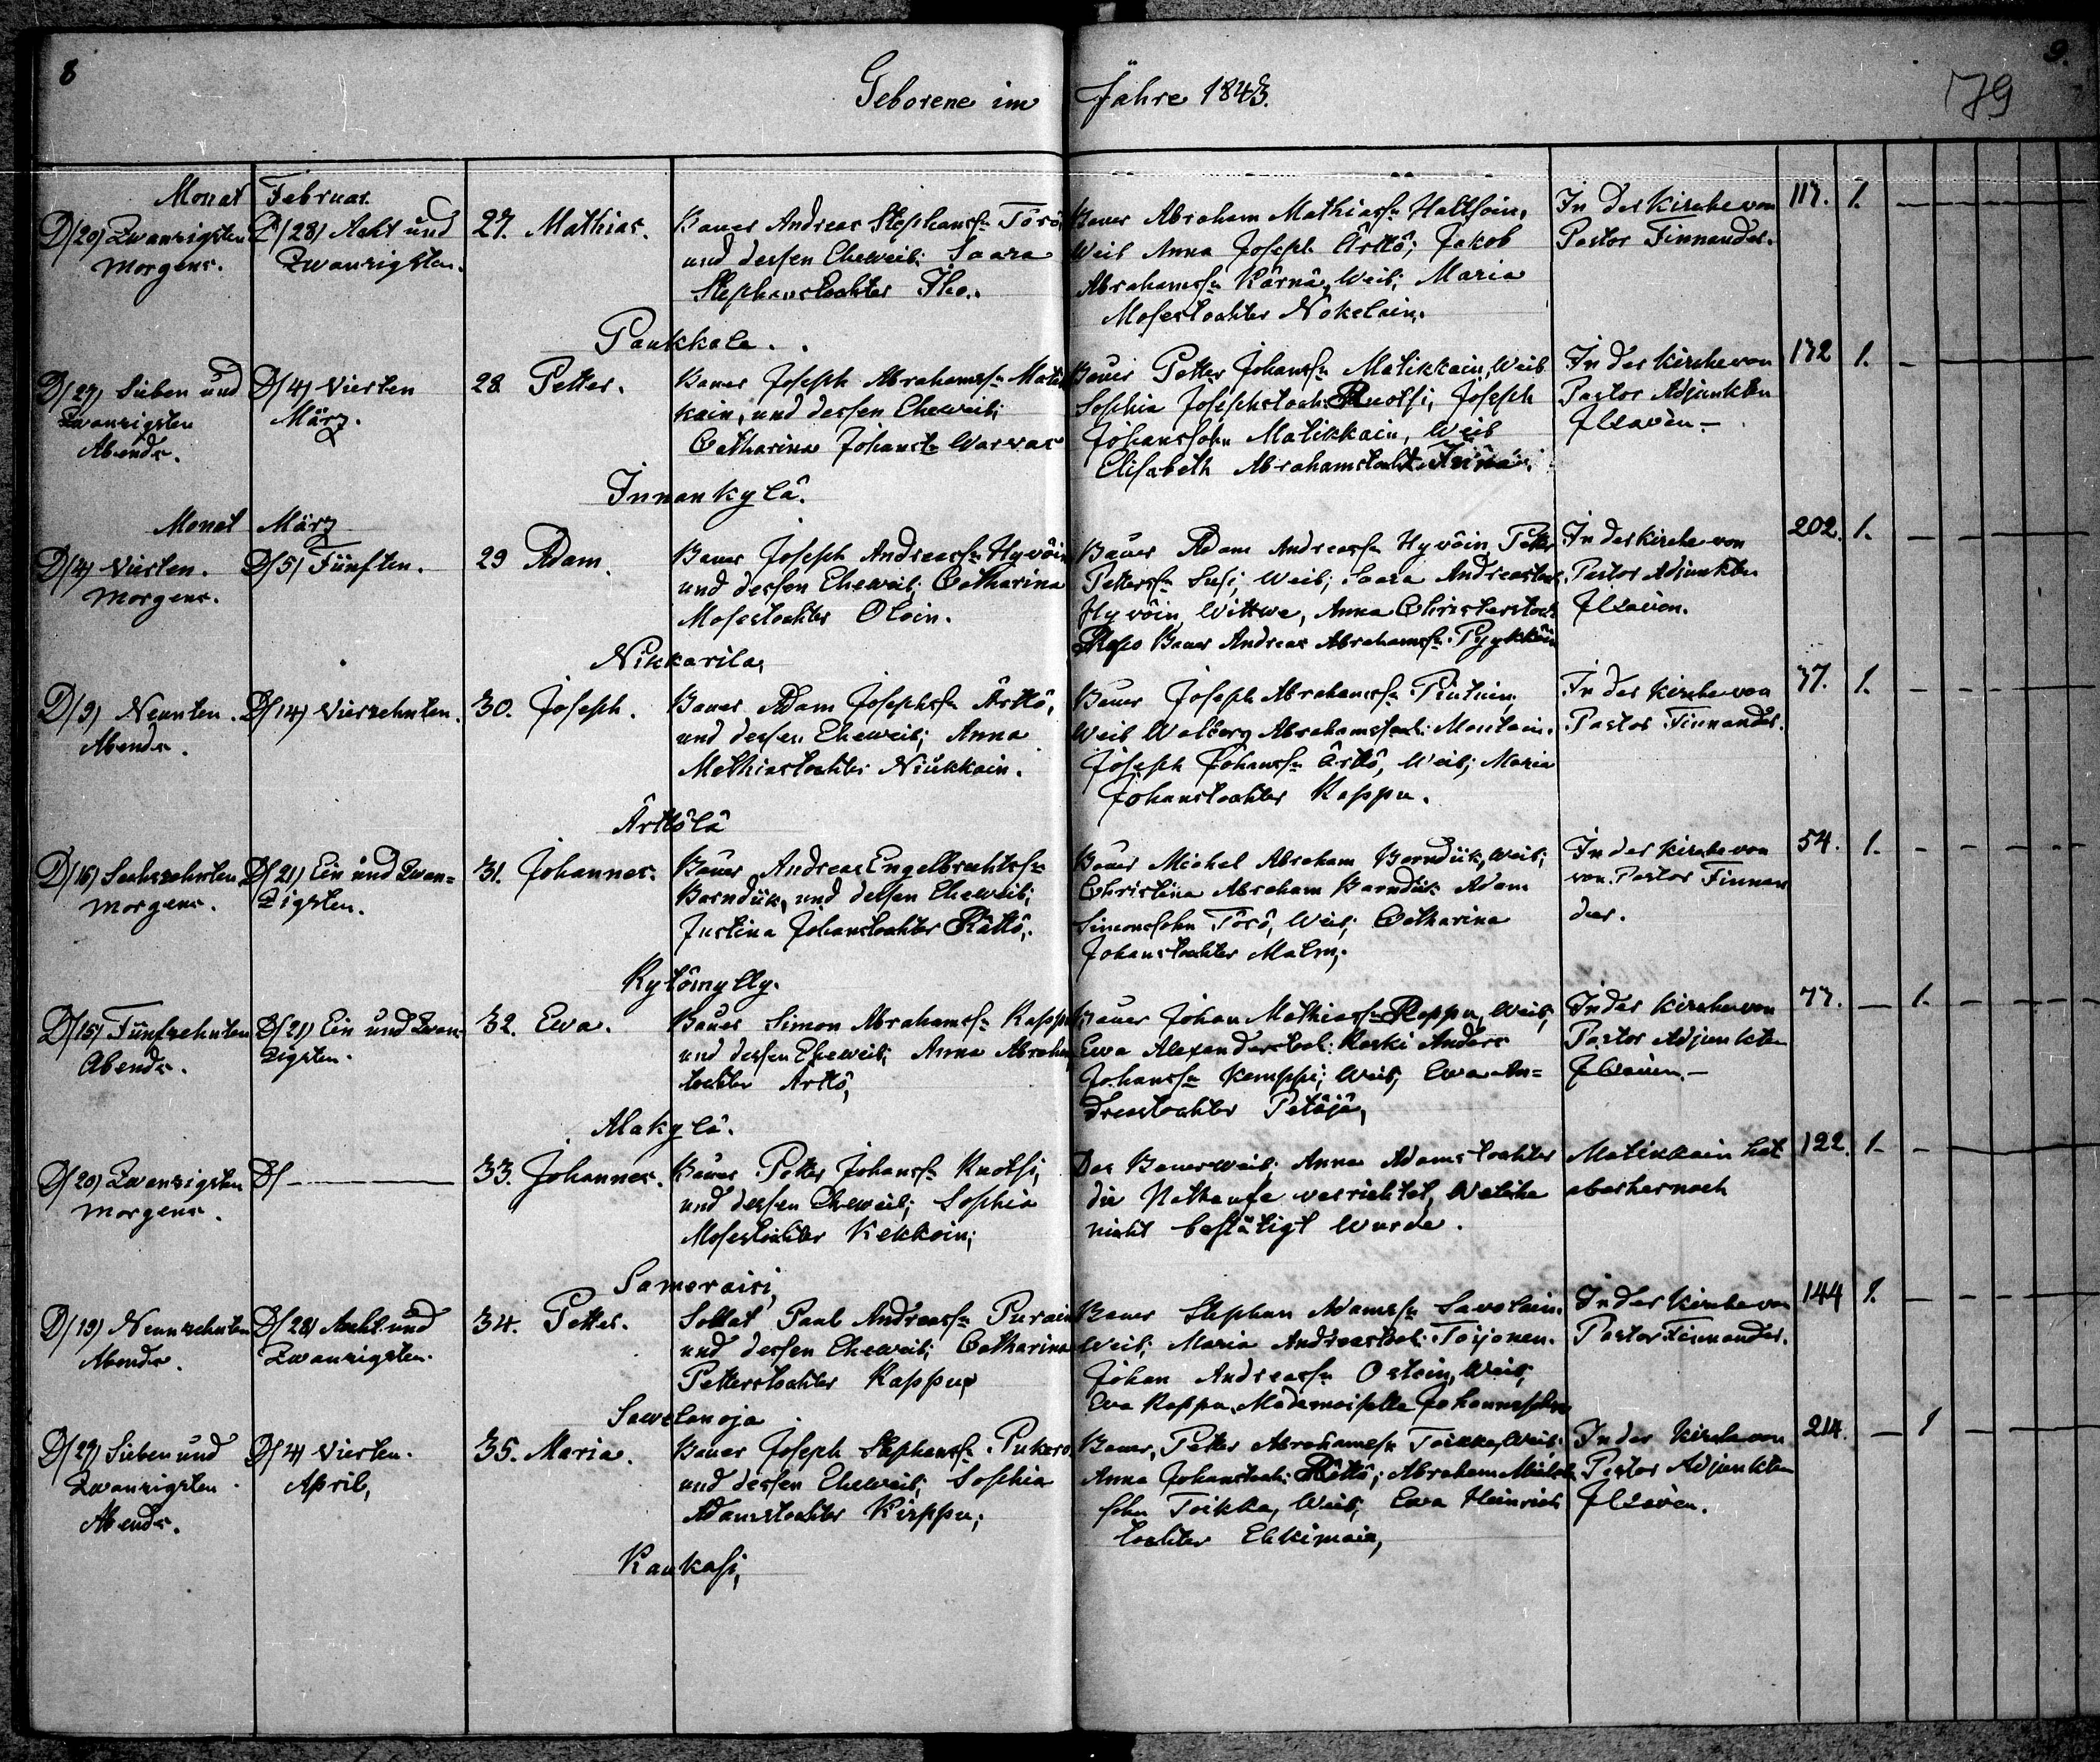 8
9.
79
Geborene im Jahre 1843.
Monat Februar.
D/20) Zwanzigsten
Morgens.
D/28) Acht und
Zwanzigsten.
27. Mathias.
Bauer Andreas Stephanss: Törö
und dessen Eheweib: Saara
Stephanstochter Iho.
Bauer Abraham Mathiass: Haltsoin,
Weib Anna Joseph Ärttö; Jakob
Abrahamss: Kärnä, Weib; Maria
Mosestochter Nokelain.
In der Kirche von
Pastor Finnander.
117. 1.
Paukkala.
D/27) Sieben und
Zwanzigsten
Abends.
D/4) Vierten
März.
28. Petter.
Bauer Joseph Abrahamss: Matik
kain, und dessen Eheweib;
Catharina Johanst: Warvas
Bauer Petter Johanss: Matikkain, Weib
Sophia Josephstoch: Ruotsi, Joseph
Johanssohn Matikkain, Weib
Elisabeth Abrahamstocht:
In der Kirche von
Pastor Adjunkten
Ilzaven.
172 1.
Innankylä.
Monat März
D/4) Vierten.
Morgens.
D/5) Fünften.
29 Adam.
Bauer Joseph Andreass: Hyvöin
und dessen Eheweib; Catharina
Mosestochter Oloin.
Bauer Adam Andreass: Hyvöin, Petter
Petterss: Susi, Weib; Saara Andreastoch:
Hyvöin, Wittwe, Anna Christerstoch:
Repo Bauer Andreas Abrahamss: Pyykköin
In der Kirche von
Pastor Adjunkten
Ilzaven.
202. 1.
Nikkarila,
D/9) Neunten.
Abends.
D/14) Vierzehnten.
30. Joseph.
Bauer Adam Josephss: Ärttö,
und dessen Eheweib; Anna
Mathiastochter Niukkain.
Bauer Joseph Abrahamss: Piutuin,
Weib Walborg Abrahamstoch: Montoin.
Joseph Johanss: Ärttö, Weib; Maria
Johanstochter Kappu.
In der Kirche von
Pastor Finnander.
37. 1.
Ärttölä
D/16) Sechszehnten
Morgens.
D/21) Ein und Zwan=
zigsten.
31. Johannes.
Bauer Andreas Engelbrechtss:
Borndük, und dessen Eheweib;
Justina Johanstochter Rättö.
Bauer Michel Abraham Borndük, Weib;
Christina Abraham Borndük Adam
Simonssohn Törö, Weib; Catharina
Johanstochter Malm;
In der Kirche von
von Pastor Finnan
der.
54. 1.
Kytömylly.
D/15) Fünfzehnten
Abends.
D/21) Ein und Zwan
zigsten.
32. Ewa.
Bauer Simon Abrahamss: Kappu
und dessen Eheweib; Anna Abraham
tochter Arttö,
Bauer Johan Mathiass: Kappu, Weib;
Ewa Alexanderstoch: Koski Anders
Johanss: Kemppi; Weib; Ewa An=
dreastochter Petäjä,
In der Kirche von
Pastor Adjunkten
Ilzaven.
77. 1.
Alakylä.
D/20) Zwanzigsten
Morgens.
D/
33. Johannes.
Bauer Petter Johanss: Ruotsi,
und dessen Eheweib; Sophia
Mosestochter Kekkoin;
Des Bauerweib; Anna Adamstochter
Matikkain hat
die Nothaufe verrichtet, Welche
aber hernach
nicht bestätigt wurde.
122. 1.
Sameraisi,
D/19) Neunzehnten
Abends.
D/28) Acht und
Zwanzigsten.
34. Petter.
Soldat Paul Andreass: Purain
und dessen Eheweib; Catharina
Petterstochter Kappu,
Bauer Stephan Adamss: Savolain.
Weib; Maria Andreastoch: Toijonen.
Johan Andreass: Ostoin, Weib;
Eva Kappu, Mademoiselle
In der Kirche von
Pastor Finnander.
144 1.
Sawelanoja
D/27) Sieben und
Zwanzigsten
Abends.
D/4) Vierten.
April,
35. Maria.
Bauer Joseph Stephanss: Pukero
und dessen Eheweib; Sophia
Adamstochter Kirppu;
Bauer, Petter Abrahamss: Toikka, Weib:
Anna Johanstoch: Rättö; Abraham
sohn Toikka, Weib; Ewa Heinrich
tochter
In der Kirche von
Pastor Adjunkten
Ilzaven.
214. 1
Kaukasi,